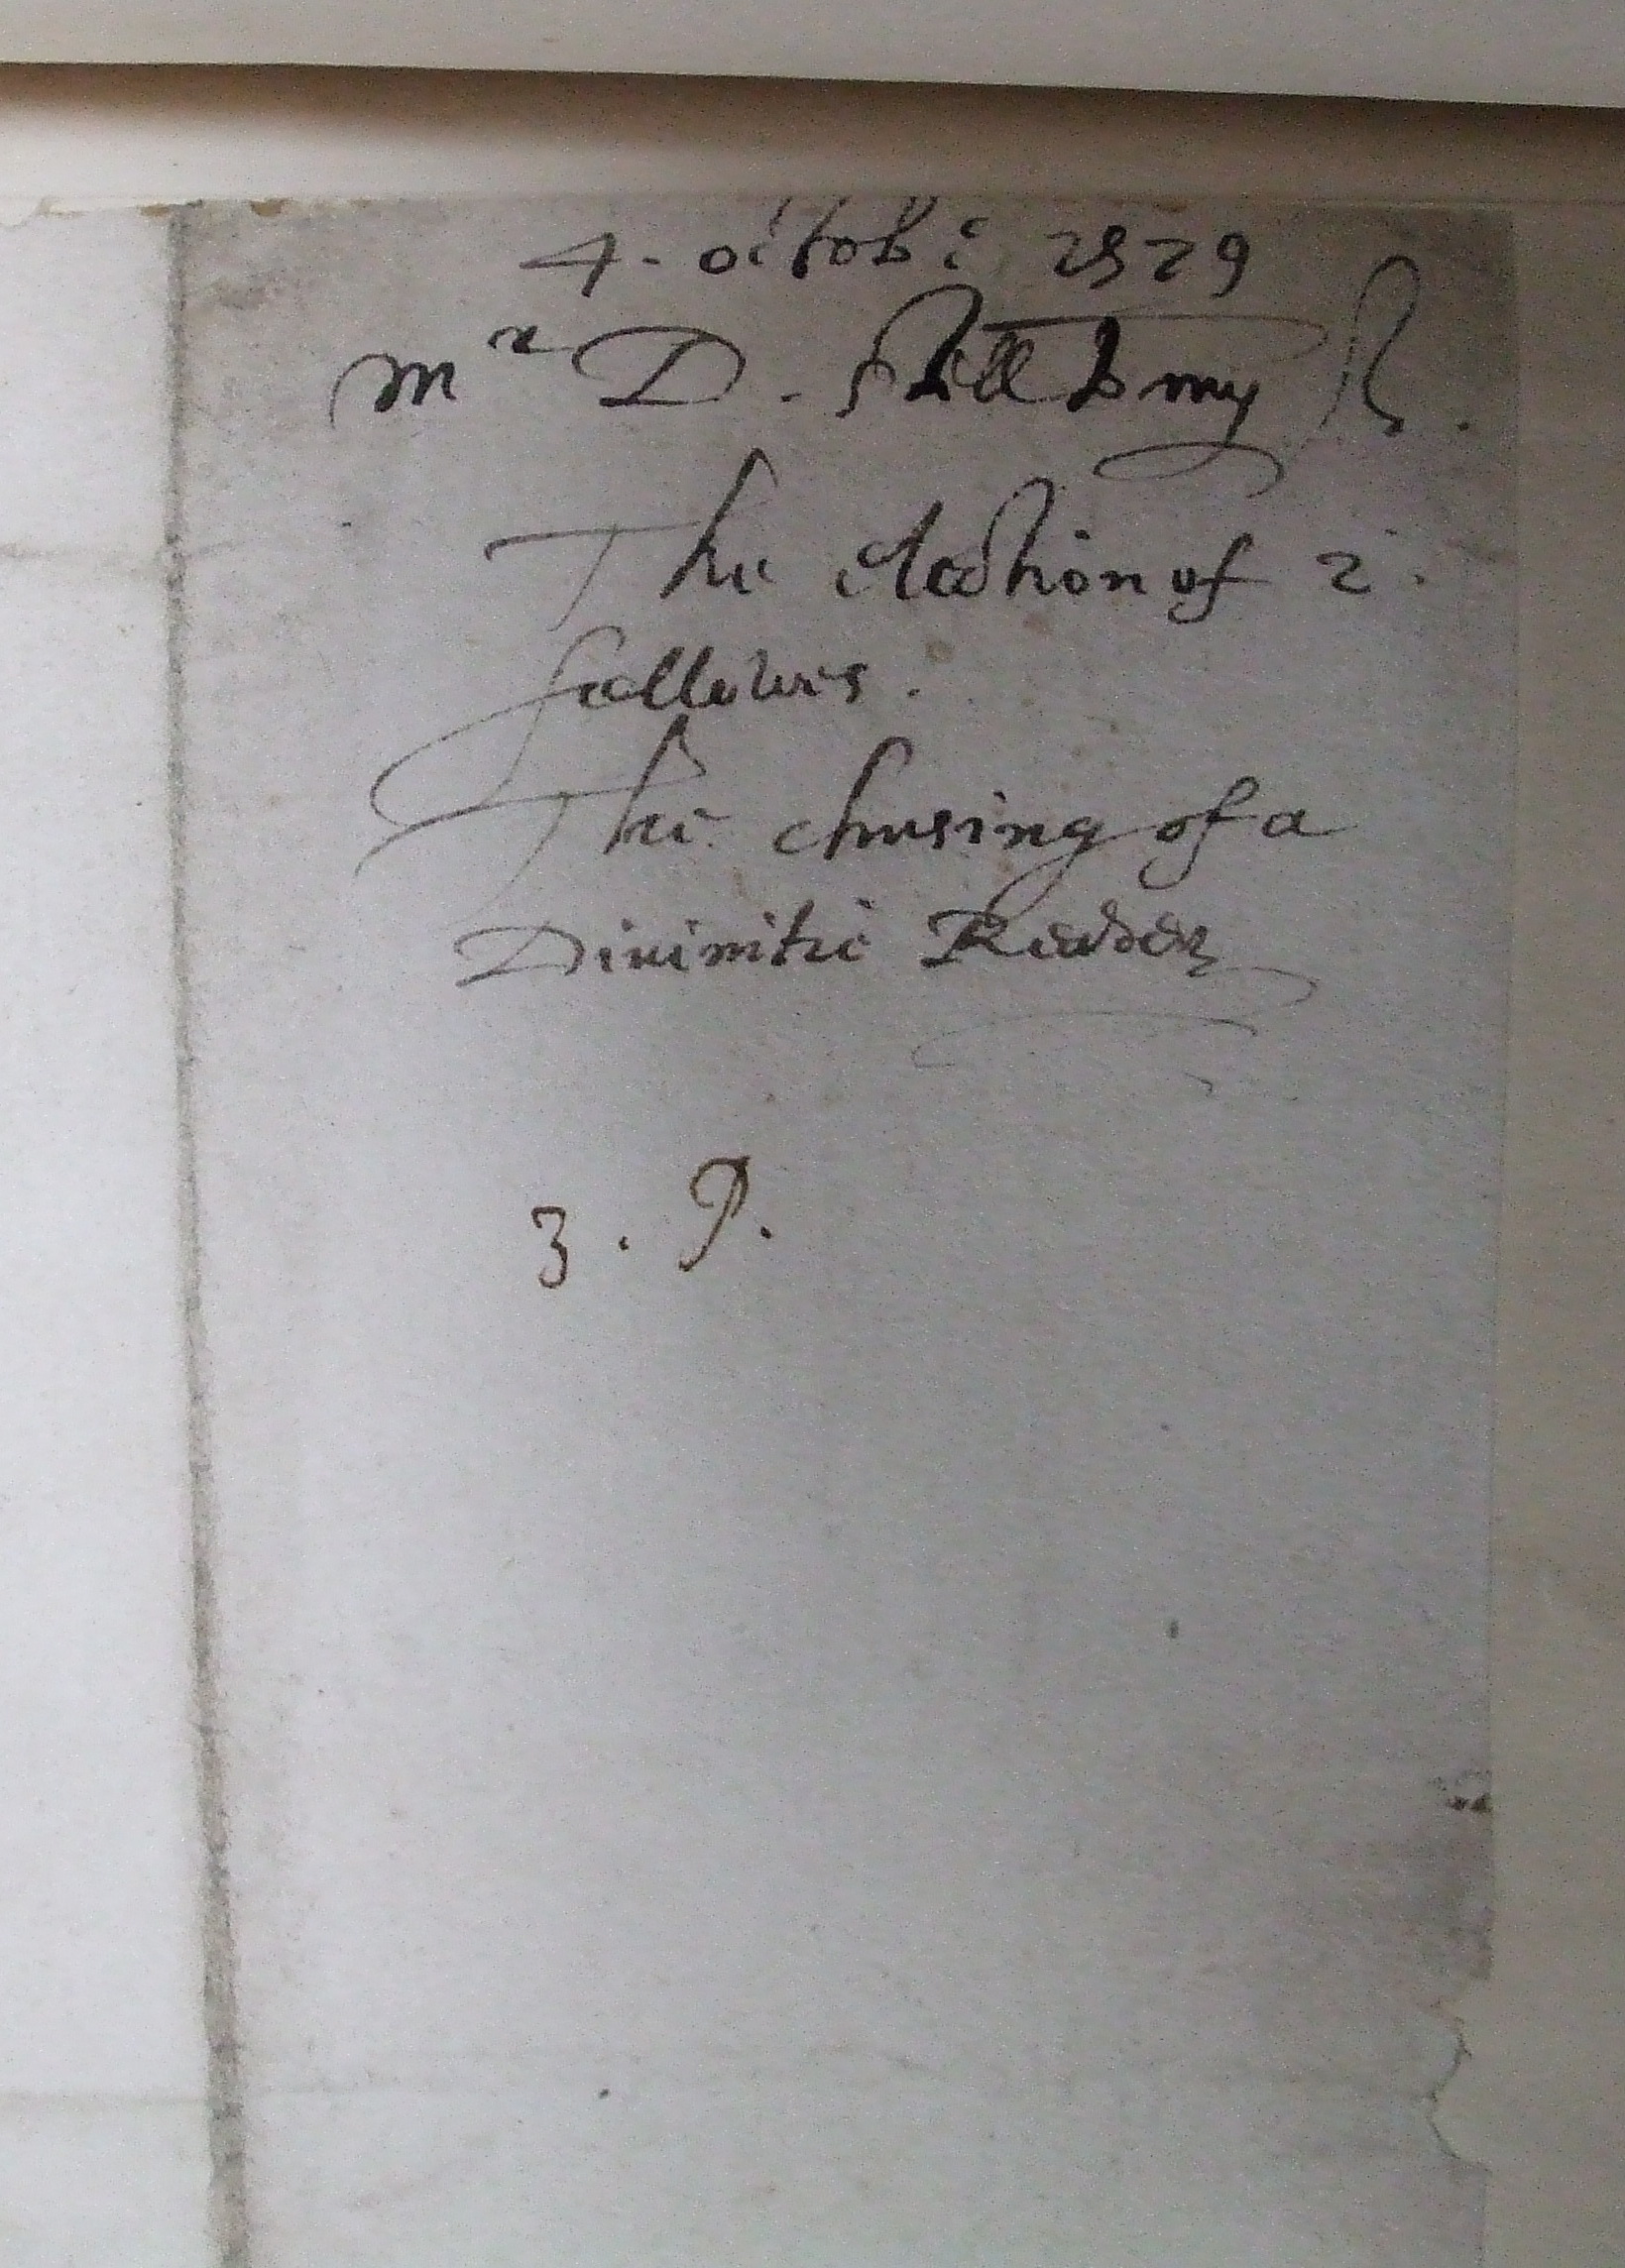 4. octob: 1579
mr D. Still to my L.
The election of 2.
fellowes.
The chusing of a
Divinitie Reader
3. 9.